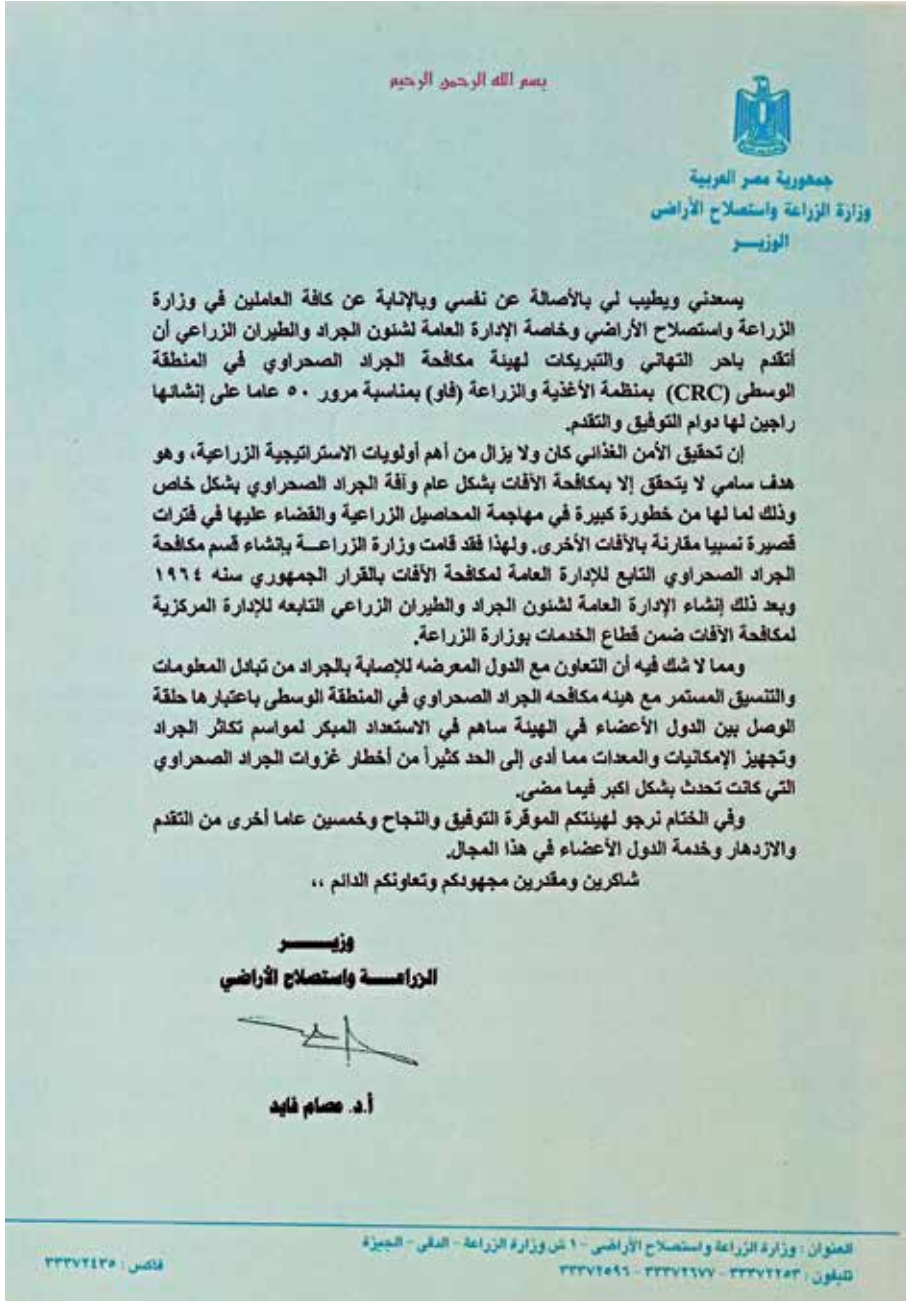 بسم الله الرحمن الرحيم
جمهورية مصر العربية
وزارة الزراعة واستصلاح الأراضى
الوزيـــر
يسعدني ويطيب لي بالأصالة عن نفسي وبالإنابة عن كافة العاملين في وزارة
الزراعة واستصلاح الأراضي وخاصة الإدارة العامة لشئون الجراد والطيران الزراعي أن
أتقدم باحر التهاني والتبريكات لهيئة مكافحة الجراد الصحراوي في المنطقة
الوسطى (CRC) بمنظمة الأغذية والزراعة (فاو) بمناسبة مرور ٥٠ عاما على إنشائها
راجين لها دوام التوفيق والتقدم.
إن تحقيق الأمن الغذائي كان ولا يزال من أهم أولويات الاستراتيجية الزراعية، وهو
هدف سامي لا يتحقق إلا بمكافحة الآفات بشكل عام وآفة الجراد الصحراوي بشكل خاص
وذلك لما لها من خطورة كبيرة في مهاجمة المحاصيل الزراعية والقضاء عليها في فترات
قصيرة نسبيا مقارنة بالآفات الأخرى. ولهذا فقد قامت وزارة الزراعـــة بإنشاء قسم مكافحة
الجراد الصحراوي التابع للإدارة العامة لمكافحة الآفات بالقرار الجمهوري سنه ١٩٦٤
وبعد ذلك إنشاء الإدارة العامة لشئون الجراد والطيران الزراعي التابعه للإدارة المركزية
لمكافحة الآفات ضمن قطاع الخدمات بوزارة الزراعة.
ومما لا شك فيه أن التعاون مع الدول المعرضه للإصابة بالجراد من تبادل المعلومات
والتنسيق المستمر مع هيئه مكافحه الجراد الصحراوي في المنطقة الوسطى باعتبارها حلقة
الوصل بين الدول الأعضاء في الهيئة ساهم في الاستعداد المبكر لمواسم تكاثر الجراد
وتجهيز الإمكانيات والمعدات مما أدى إلى الحد كثيراً من أخطار غزوات الجراد الصحراوي
التي كانت تحدث بشكل اكبر فيما مضى.
وفي الختام نرجو لهيئتكم الموقرة التوفيق والنجاح وخمسين عاما أخرى من التقدم
والازدهار وخدمة الدول الأعضاء في هذا المجال.
شاكرين ومقدرين مجهودكم وتعاونكم الدائم ،،
وزيـــــــر
الزراعـــــة واستصلاح الأراضي
أ.د. عصام فايد
العنوان : وزارة الزراعة واستصلاح الأراضى - ١ ش وزارة الزراعة - الدقى - الجيزة
تليفون : ٣٣٣٧٢٢٥٣ - ٣٣٣٧٢٦٧٧ - ٣٣٣٧٢٥٩٦
فاكس : ٣٣٣٧٢٤٣٥